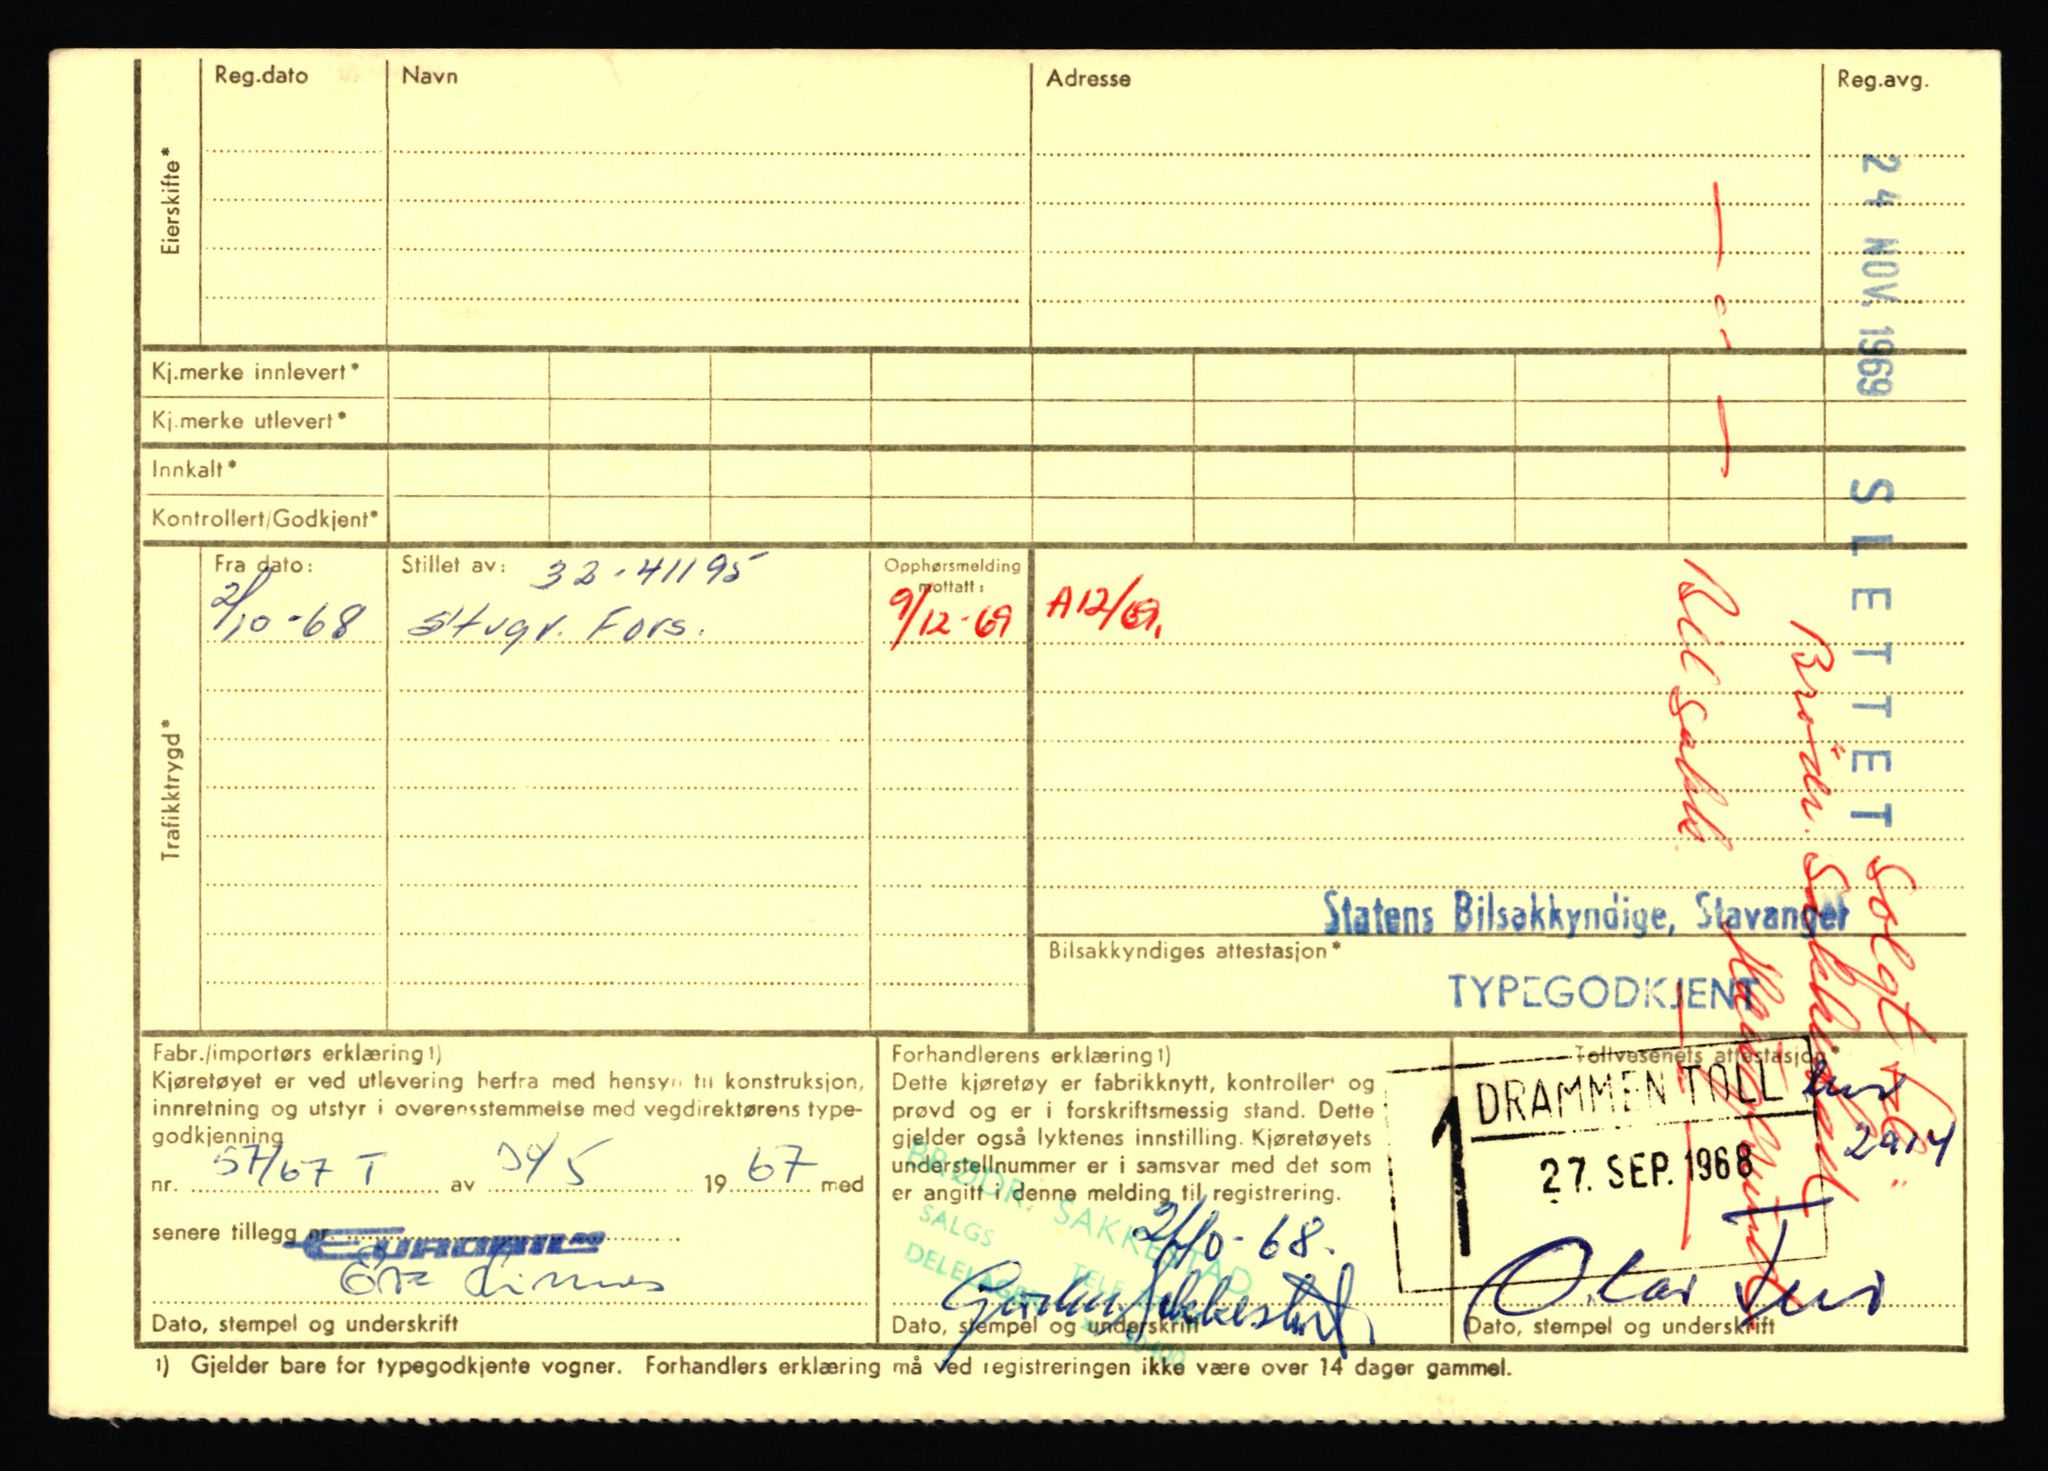 Reg.dato Navn Adresse Reg.avg.
Eierskifte*
24 NOV. 1969 SLETTET
Kj.merke innlevert*
Kj.merke utlevert*
Innkalt*
Kontrollert/Godkjent*
Trafikktrygd*
Fra dato: Stillet av: 32-41195 Opphørsmelding mottatt:
2/10-68 Stvgr. Fors. 9/12-69 A12/69.
Solgt
Brødr.
Bilsakk.
Statens Bilsakkyndige, Stavanger
Bilsakkyndiges attestasjon*
TYPEGODKJENT
Fabr./importørs erklæring1)
Kjøretøyet er ved utlevering herfra med hensyn til konstruksjon,
innretning og utstyr i overensstemmelse med vegdirektørens type-
godkjenning
nr. 57/67 T av 5 1967 med
senere tillegg nr.
Dato, stempel og underskrift
Forhandlerens erklæring1)
Dette kjøretøy er fabrikknytt, kontrollert og
prøvd og er i forskriftsmessig stand. Dette
gjelder også lyktenes innstilling. Kjøretøyets
understellnummer er i samsvar med det som
er angitt i denne melding til registrering.
BRØDR. SAKKESTAD
SALGS
2/10-68.
Dato, stempel og underskrift
Tollvesenets attestasjon
DRAMMEN TOLL
1
27. SEP. 1968
2914
Olav
Dato, stempel og underskrift
1) Gjelder bare for typegodkjente vogner. Forhandlers erklæring må ved registreringen ikke være over 14 dager gammel.